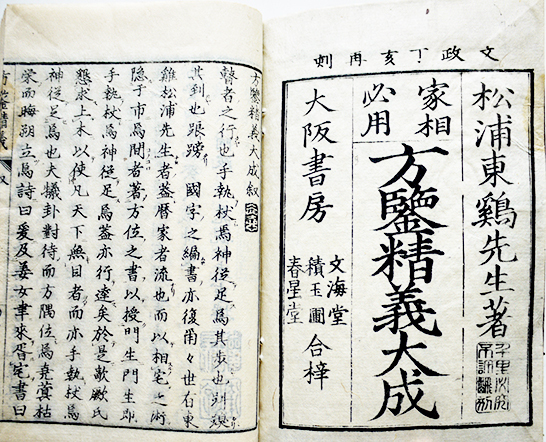 文政丁亥再刻
松浦東鷄先生著
家相
必用
方鑒精義大成
大阪書房
文海堂
積玉圃
春星堂
合梓
方鑒精義大成叙
瞽者之行也手執杖焉神從足焉其步也
其到也踉蹡國字之編書亦復爾々世有東
雞松浦先生者蓋曆家者流也而以相宅之術
隱于市焉間者著方位之書以授門生門生即
手執杖焉神從足焉蓋亦行達矣於是歟厥氏
懇求上木以使凡天下無目者而亦手執杖焉
神從足焉也夫蟻卦對待而方隅位焉蓂莢枯
榮而晦朔立焉詩曰爰及姜女聿來胥宇書曰
方鑒精義 叙